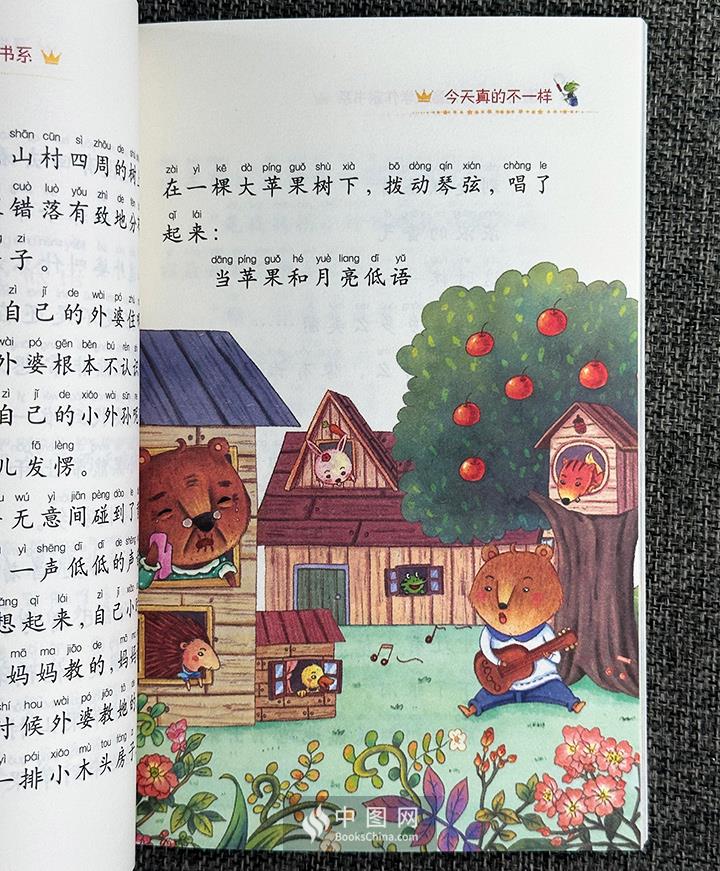 书系
shān cūn sì zhōu de
山村四周的树
cuò luò yǒu zhì de
错落有致地分
zi
子。
zì jǐ de wài pó zhù
自己的外婆住
wài pó gēn běn bú rèn
外婆根本不认识
zì jǐ de xiǎo wài sūn
自己的小外孙
fā lèng
儿发愣。
wú yì jiān pèng dào le
无意间碰到了
yì shēng dī dī de shēng
一声低低的声
xiǎng qǐ lái zì jǐ xiǎo
想起来,自己小
mā ma jiāo de mā ma
妈妈教的,妈妈
shí hou wài pó jiāo tā de
时候外婆教她的
yì pái xiǎo mù tou fáng
一排小木头房子
今天真的不一样
zài yì kē dà píng guǒ shù xià bō dòng qín xián chàng le
在一棵大苹果树下,拨动琴弦,唱了
qǐ lái
起来:
dāng píng guǒ hé yuè liang dī yǔ
当苹果和月亮低语
中图网
BooksChina.com